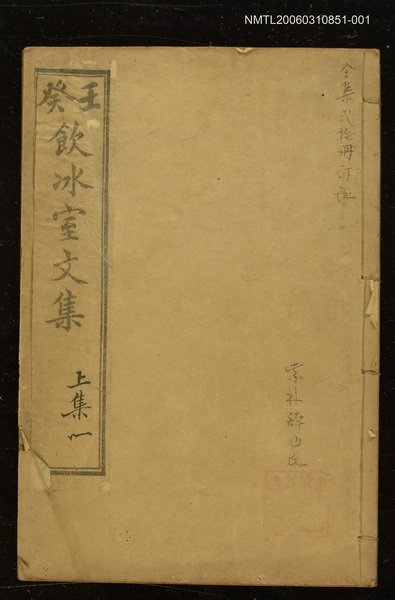 NMTL20060310851-001
壬癸
飲冰室文集
上集一
全集弍拾冊
山氏